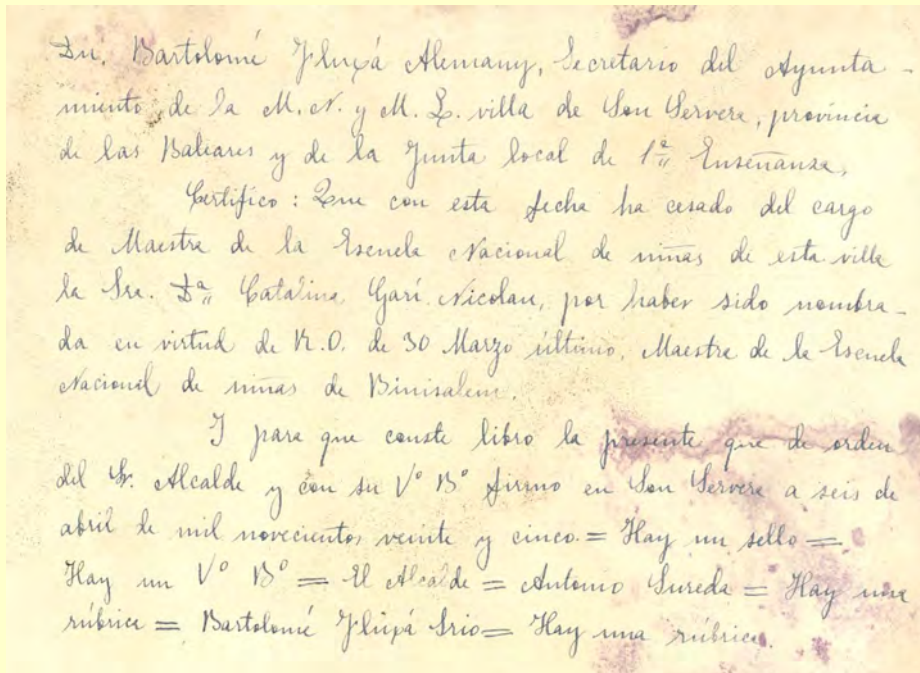 Dn. Bartolomé Flupá Alemany, Secretario del Ayunta-
miento de la M. N. y M. L. villa de Son Servera, provincia
de las Baleares y de la Junta local de 1ª Enseñanza,
Certifico: Que con esta fecha ha cesado del cargo
de Maestra de la Escuela Nacional de niñas de esta villa
la Sra. Dª Catalina Garí Nicolau, por haber sido nombra-
da en virtud de R.O. de 30 Marzo último, Maestra de la Escuela
Nacional de niñas de Binisalem.
Y para que conste libro la presente que de orden
del Sr. Alcalde y con su Vº Bº firmo en Son Servera a seis de
abril de mil novecientos veinte y cinco. = Hay un sello =
Hay un Vº Bº = El Alcalde = Antonio Sureda = Hay una
rúbrica = Bartolomé Flupá Srio = Hay una rúbrica.